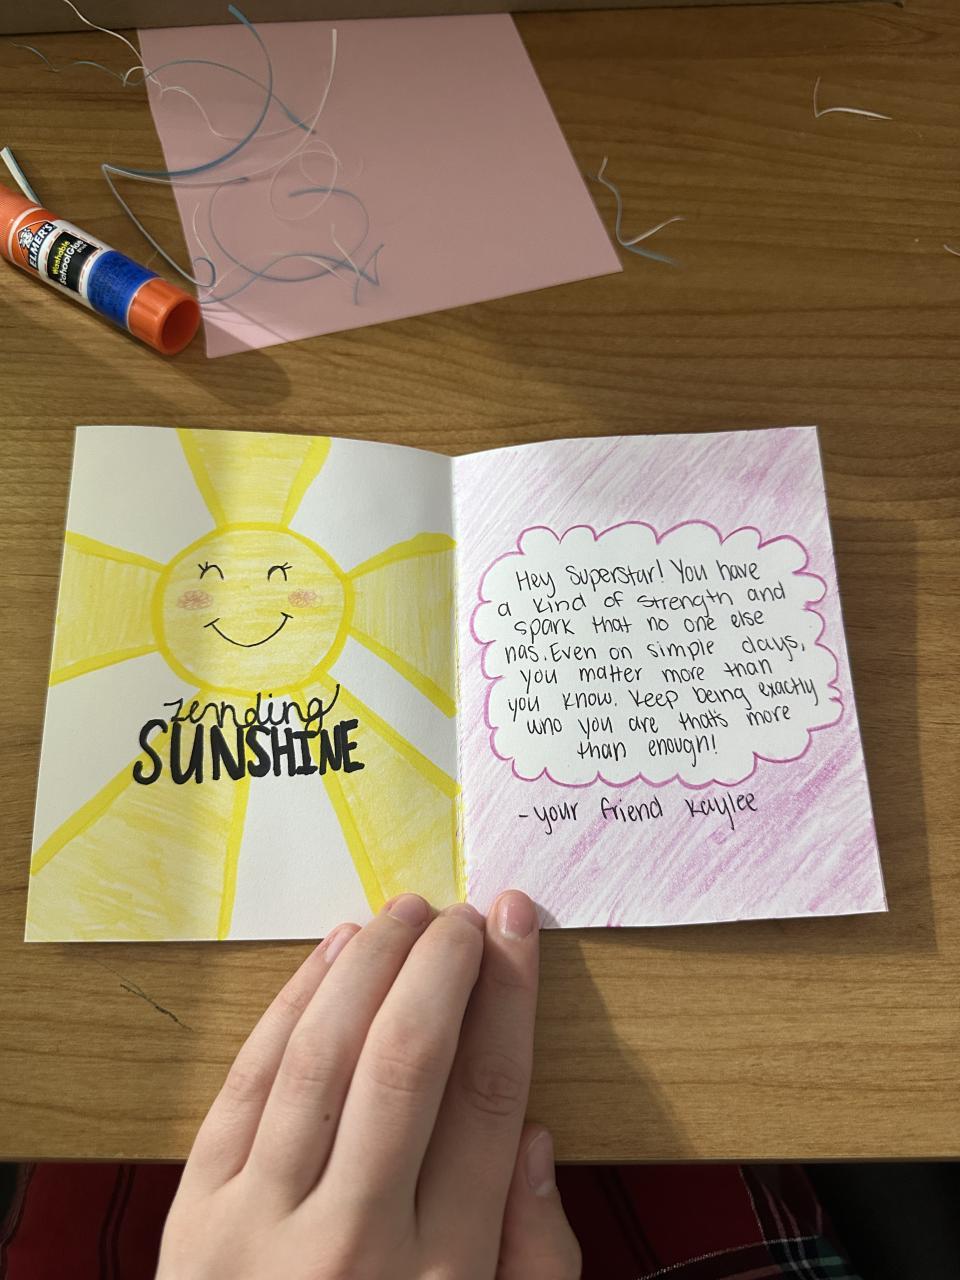 ELMER'S
Washable
School Glue
sending
SUNSHINE
Hey Superstar! You have
a kind of strength and
spark that no one else
has. Even on simple days,
you matter more than
you know. Keep being exactly
who you are that's more
than enough!
- your friend Kaylee